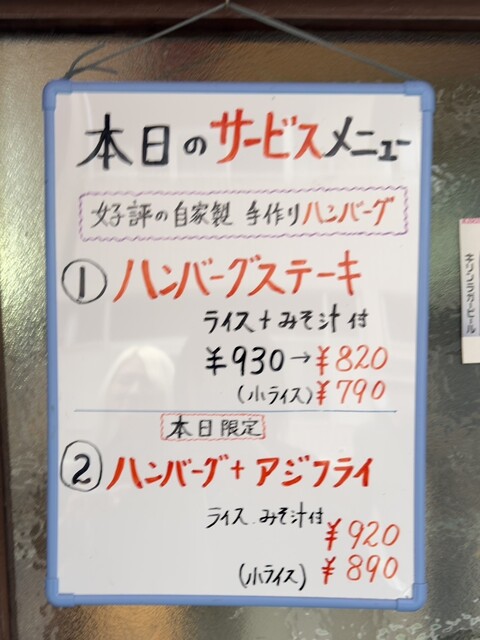 本日のサービスメニュー
好評の自家製 手作りハンバーグ
① ハンバーグステーキ
ライス+みそ汁付
¥930→¥820
(小ライス)¥790
本日限定
② ハンバーグ+アジフライ
ライス.みそ汁付
¥920
(小ライス) ¥890
キリンラガービール